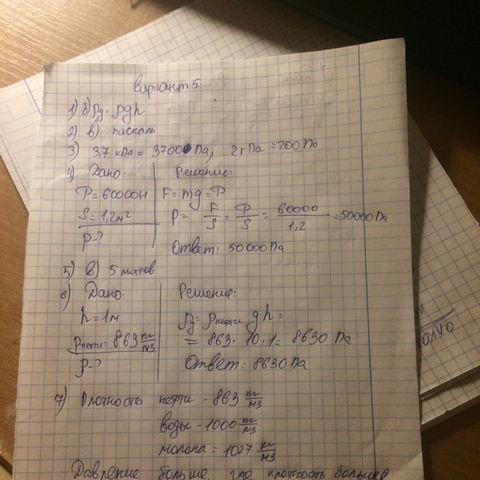 Вариант 5
1) б) ρgh
2) в) паскаль
3) 3,7 кПа = 3700 Па, 2 гПа = 200 Па
4) Дано: Решение:
P = 60000Н F = mg = P
S = 1,2 м² p = F/S = P/S = 60000/1,2 = 50000 Па
p - ?
Ответ: 50000 Па
5) в) 5 метров
6) Дано: Решение:
h = 1 м ρнефти gh =
ρнефти = 863 кг/м3 = 863 · 10 · 1 = 8630 Па
p - ? Ответ: 8630 Па
7) Плотность нефти - 863 кг/м3
воды - 1000 кг/м3
молока = 1027 кг/м3
Давление больше где плотность больше